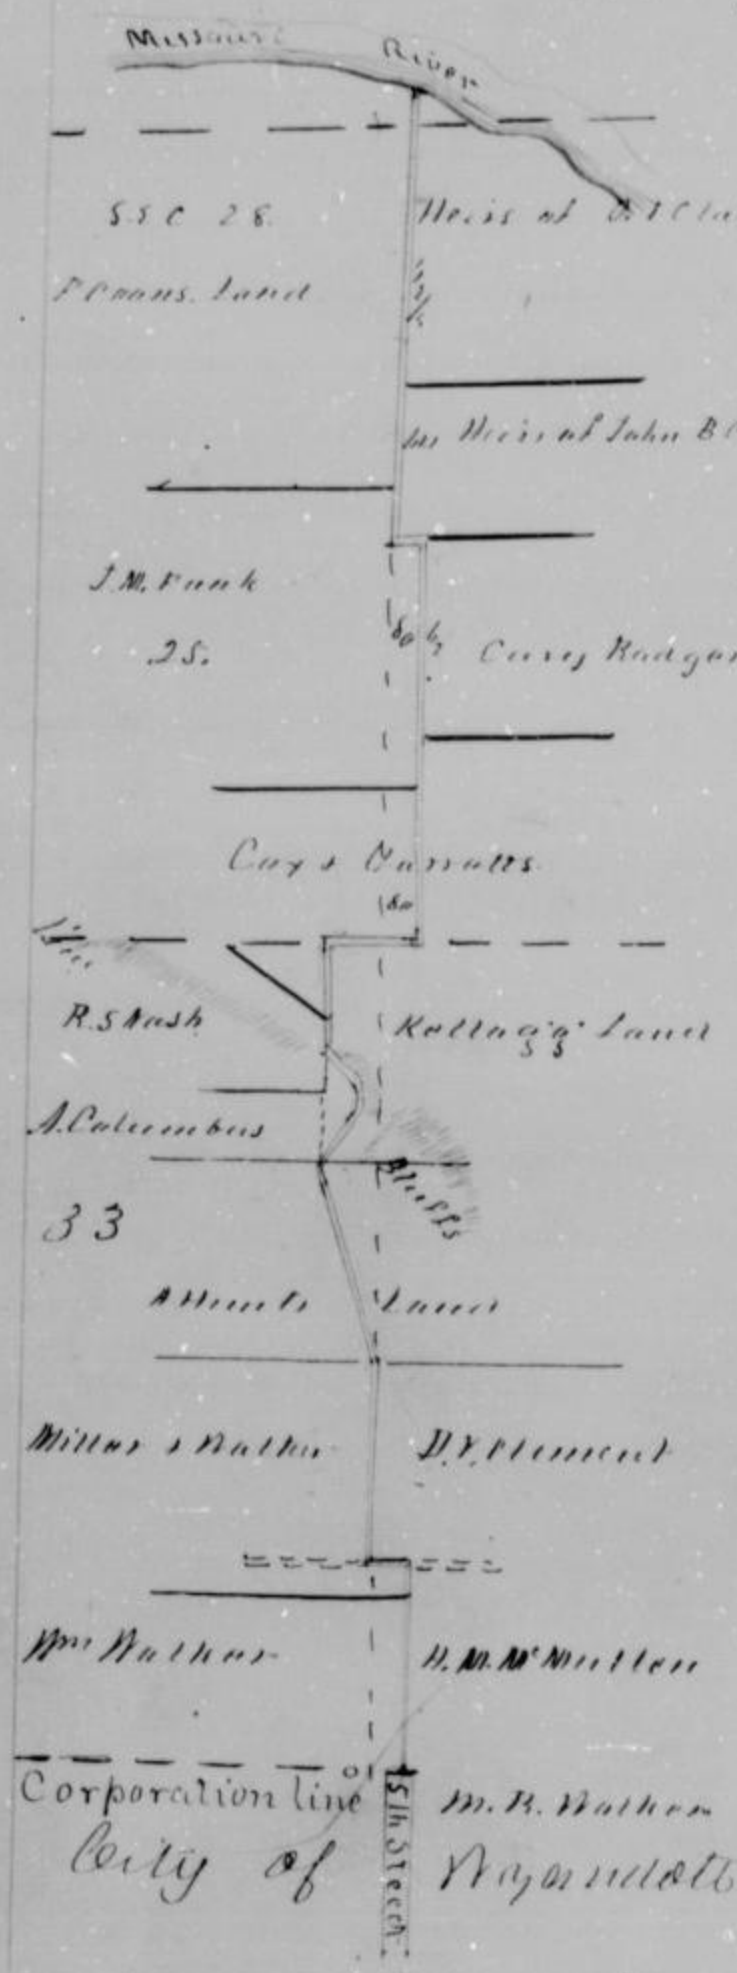 Missouri River
S.E C 28.
Heirs of
Land
Heirs of John B
J. M. Funk
25.
80
Cary Rodgers
Cox & Garratts
80
R. S Nash
Kellogg's Land
A. Columbus
Bluffs
33
A Hunts Land
Millar & Walker
D. V. Clement
Wm Walker
H. M. Mc Mullen
Corporation line
5th Street
M. R. Walker
City of Wyandott